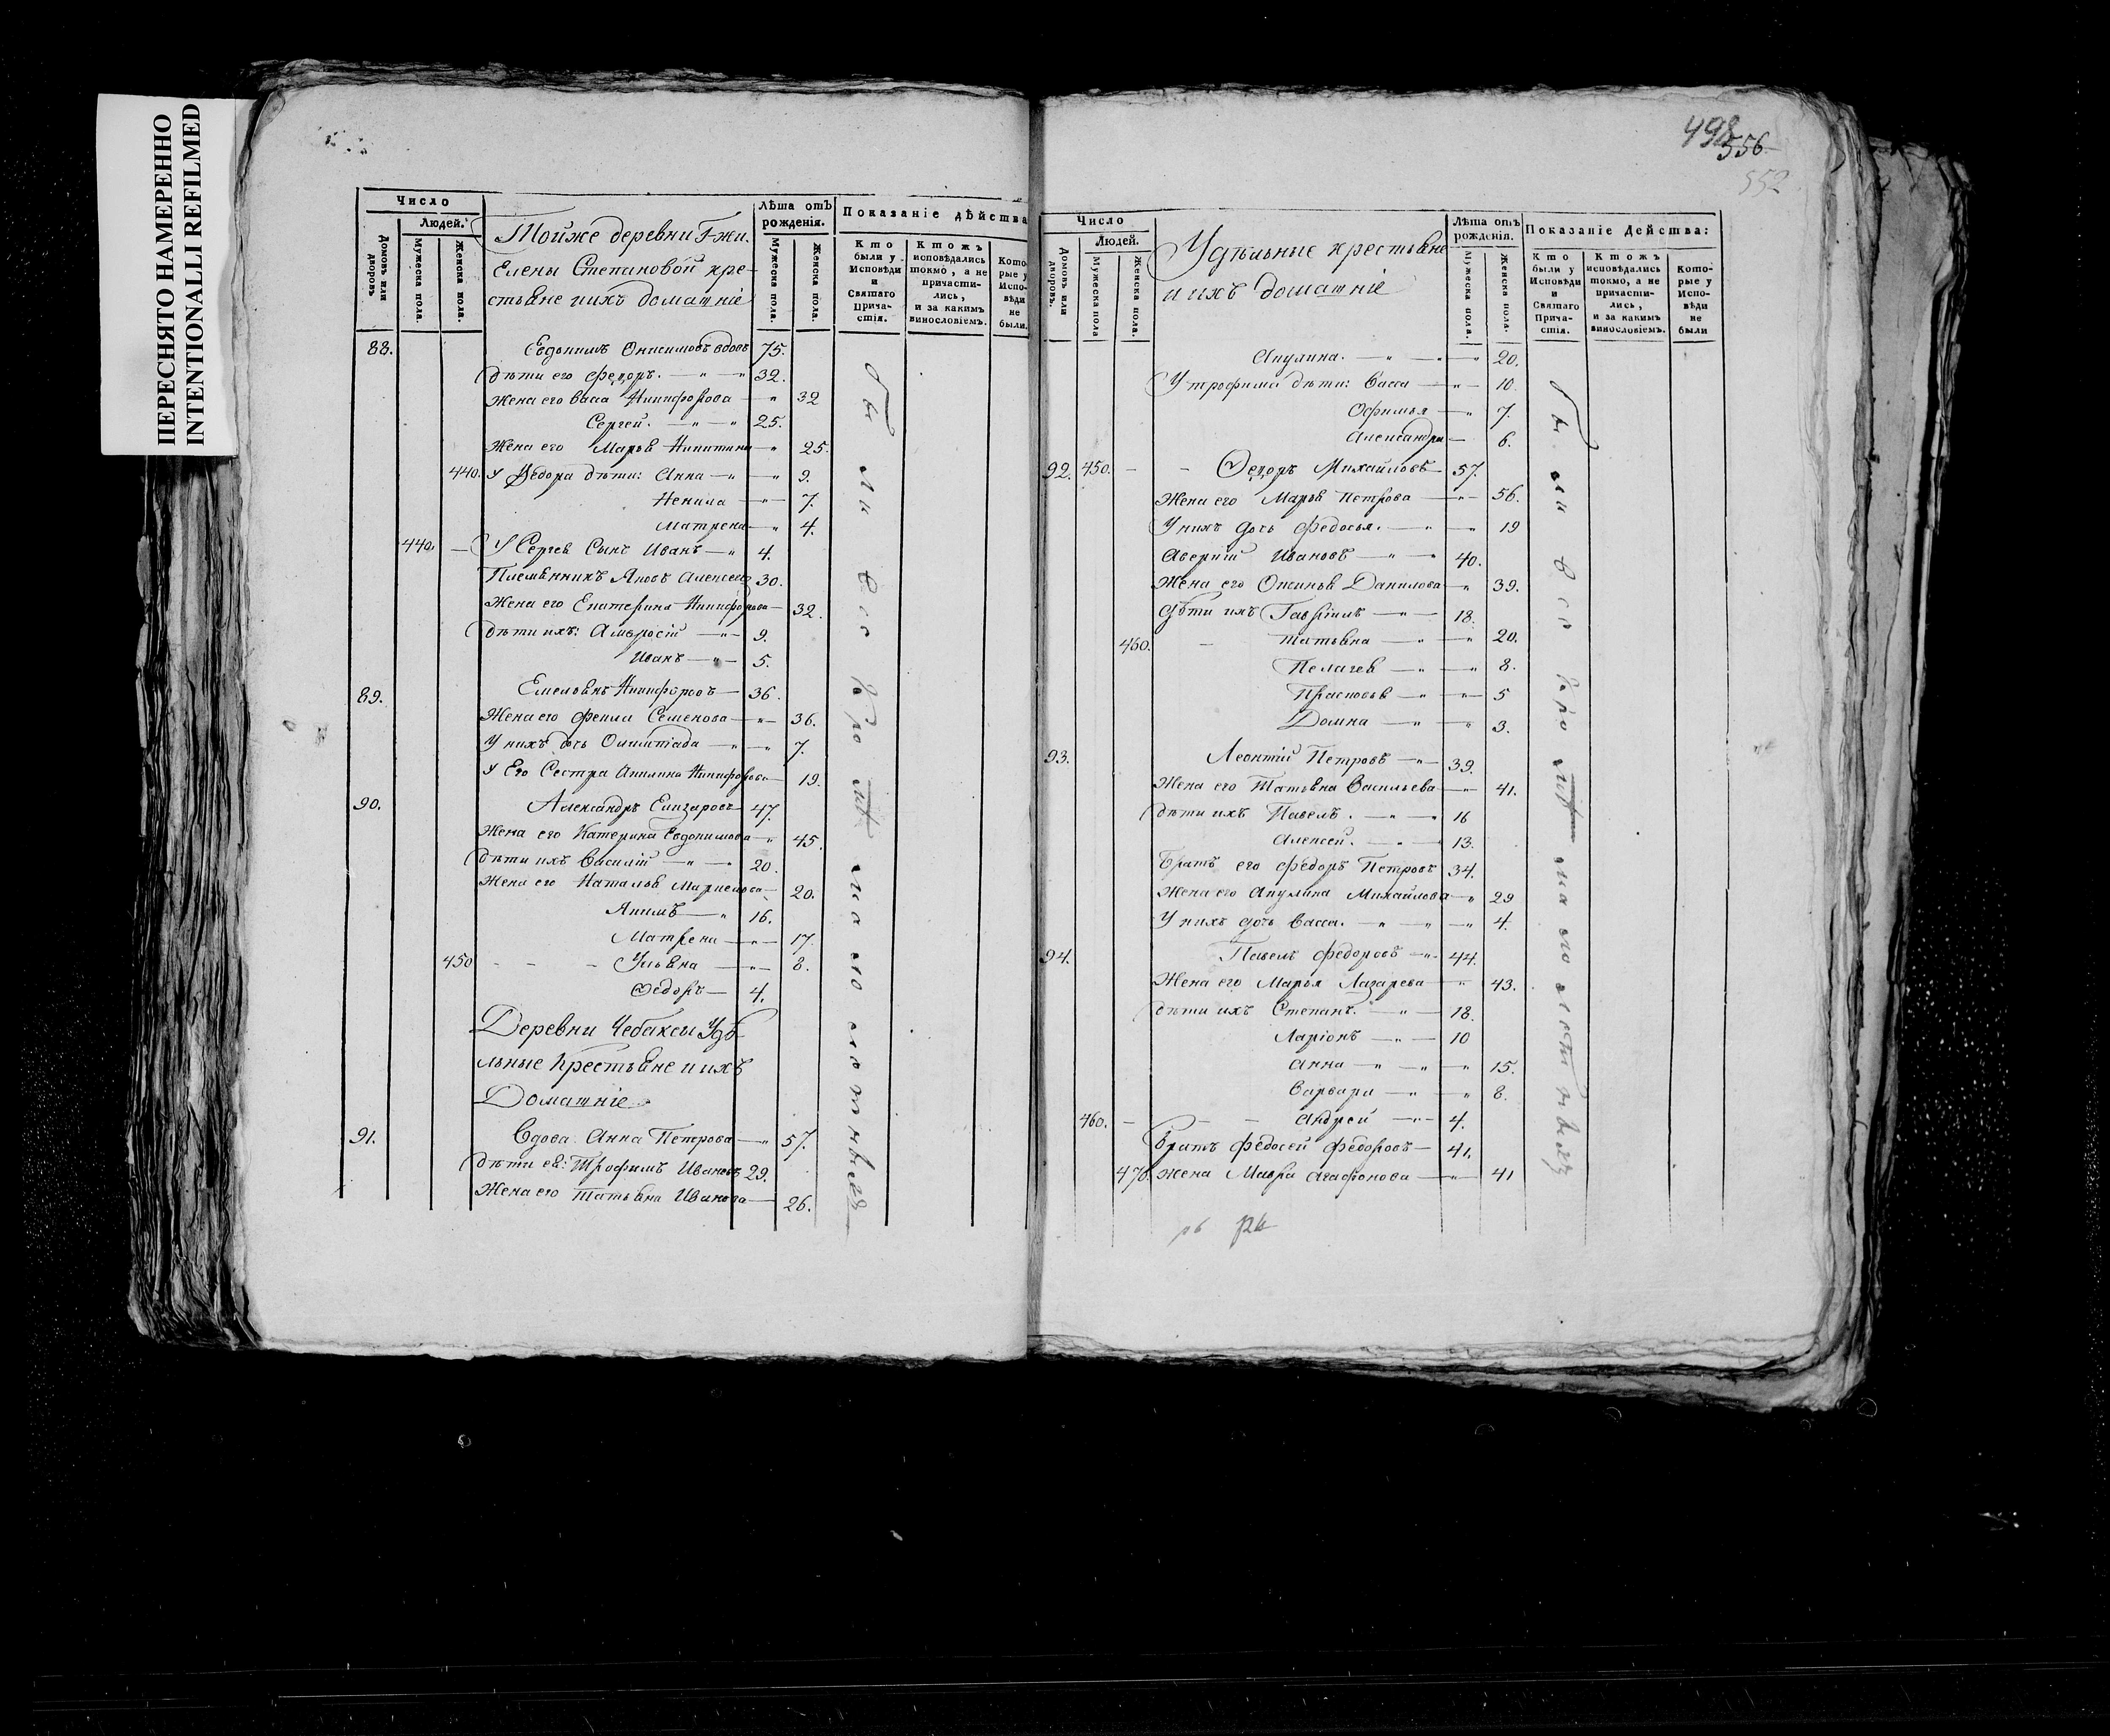 ПЕРЕСНЯТО НАМЕРЕННО
INTENTIONALLI REFILMED
Число
Людей.
Домовъ или дворовъ
Мужеска пола.
Женска пола.
Тойже деревни Г-жи.
Елены Степановой кре-
стьяне и ихъ домашніе
Лѣта отъ рожденія.
Мужеска пола.
Женска пола.
Показаніе дѣйства
Кто были у Исповѣди и Святаго Прича-стія.
Ктожъ исповѣдались токмо, а не причасти-лись, и за какимъ винословіемъ.
Кото-рые у Испо-вѣди не были.
88. Евдокимъ Онисимовъ вдовъ 75.
дѣти его Федоръ. — " — " 32.
Жена его Васа Никифорова — " 32
Сергей. — " — " 25.
Жена его Марья Никитина — " 25.
440. У Федора дѣти: Анна — " — " 9.
Ненила — " — 7.
Матрена — " 4.
440. — У Сергея Сынъ Иванъ — " 4.
Племянникъ Яковъ Алексеевъ 30.
Жена его Екатерина Никифорова — 32.
дѣти ихъ: Амвросій — " — 9.
Иванъ — " — 5.
89. Емельянъ Никифоровъ — 36.
Жена его Фекла Семенова — " — 36.
У нихъ дочь Олимпіада — " — " — 7.
У Его Сестра Акилина Никифорова — 19.
90. Александръ Елизаровъ — 47.
Жена его Катерина Евдокимова — " 45.
дѣти ихъ Василій — " — " 20.
Жена его Наталья Маркелова — 20.
Якимъ — " 16.
Матрена — " — 17.
450 - - - Ульяна — " — 8.
Федоръ — 4.
Деревни Чебаксы Удѣ-
льные Крестьяне и ихъ
Домашніе
91. Вдова Анна Петрова — " 57.
дѣти ея: Трофимъ Ивановъ 29.
Жена его Татьяна Иванова — 26.
498
556
552
Число
Людей.
Домовъ или дворовъ.
Мужеска пола
Женска пола.
Удѣльные крестьяне
и ихъ домашніе
Лѣта отъ рожденія.
Мужеска пола.
Женска пола.
Показаніе Дѣйства:
Кто были у Исповѣди и Святаго Прича-стія.
Ктожъ исповѣдались токмо, а не причасти-лись, и за какимъ винословіемъ.
Кото-рые у Испо-вѣди не были
Акулина. — " — " — " 20.
У Трофима дѣти: Васса — " — 10.
Офимья — " 7.
Александра — 6.
92. 450. - - Федоръ Михайловъ — 57.
Жена его Марья Петрова — " — 56.
У нихъ дочь Федосья. — " — " 19
Аверкій Ивановъ — " — " 40.
Жена его Оксинья Данилова — " 39.
Дѣти ихъ Гавріилъ — " — 18.
460. - Татьяна — " — " 20.
Пелагея — " — " 8.
Прасковья — " — " — 5
Домна — " — " 3.
93. Леонтій Петровъ — " — 39.
Жена его Татьяна Васильева — " — 41.
дѣти ихъ Павелъ. — " — " 16
Алексей. — " — 13.
Братъ его Федоръ Петровъ 34.
Жена его Акулина Михайлова — " 29
У нихъ дочь Васса. — " — " — " 4.
94. Павелъ Федоровъ — " — 44.
Жена его Марья Лазарева — " 43.
дѣти ихъ Степанъ. — " — 18.
Ларіонъ — " — 10
Анна — " — " — " 15.
Варвара — " — " 8.
460. - - - Андрей — " — 4.
Братъ Федосей Федоровъ — 41.
470. Жена Мавра Агафонова — " — 41